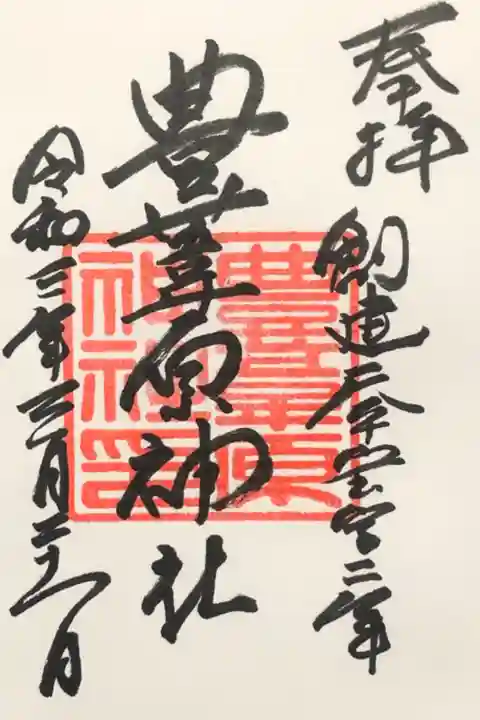 奉拝
創建天平宝字二年
豊葦原神社
豊葦原
神社印
令和三年三月二十一日